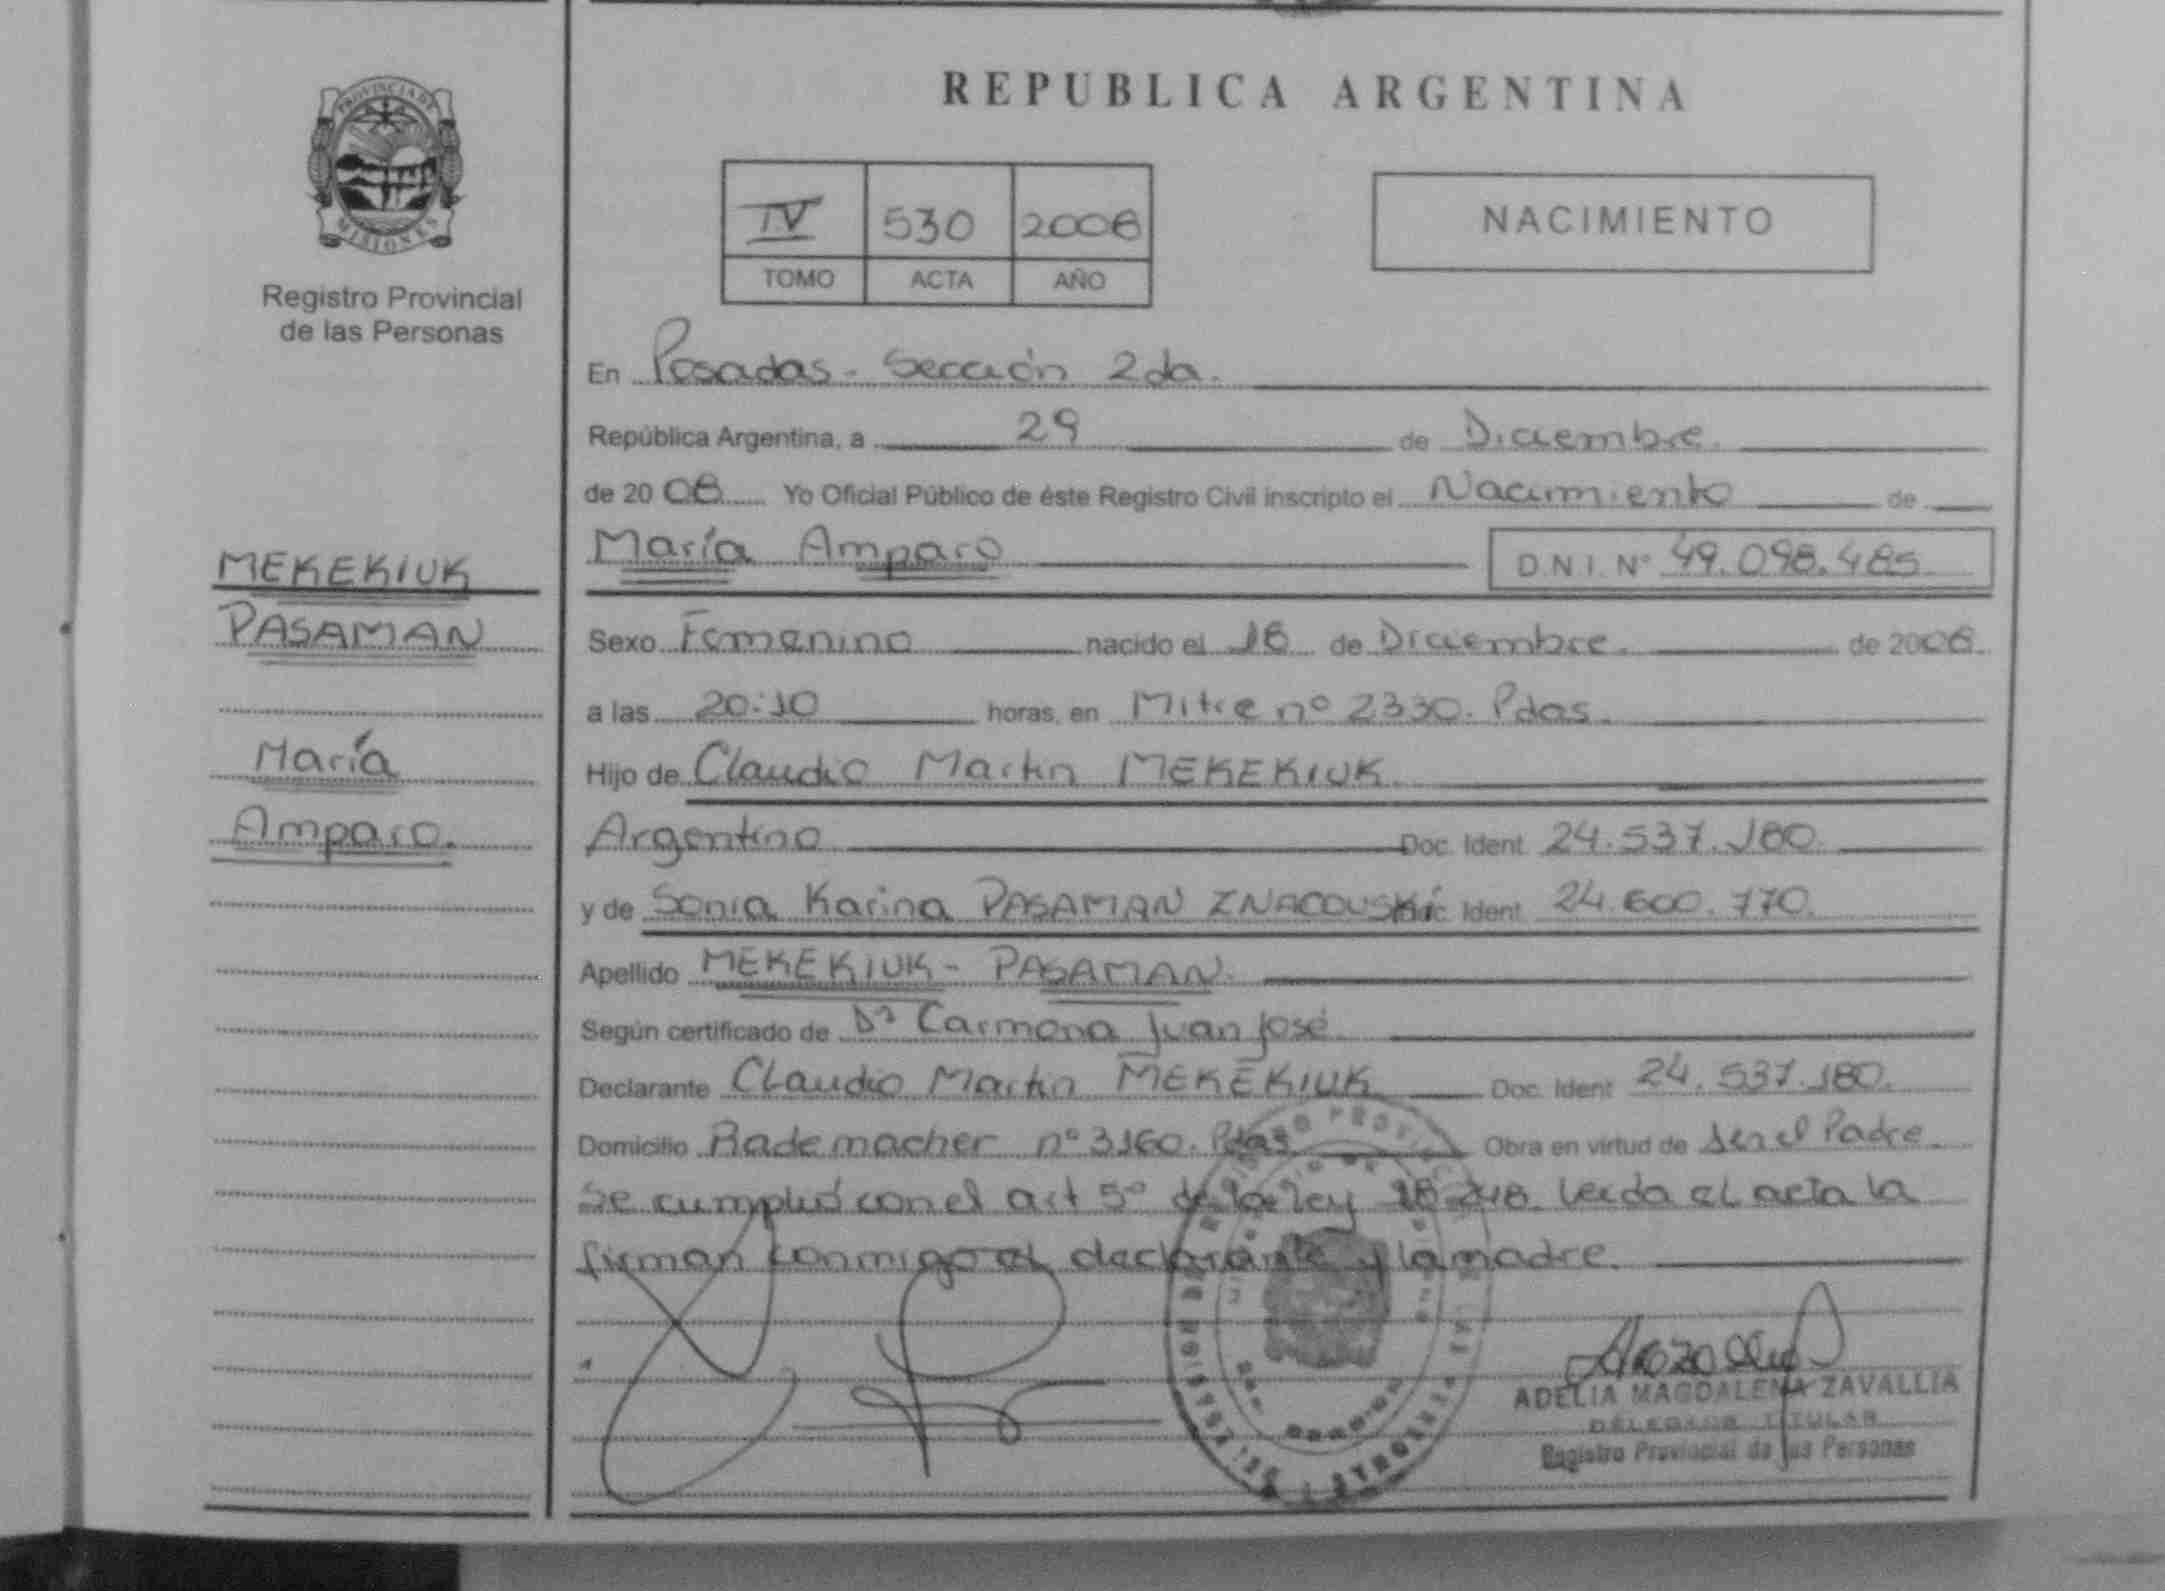 PROVINCIA DE
MISIONES
Registro Provincial
de las Personas
MEKEKIUK
PASAMAN
María
Amparo.
REPUBLICA ARGENTINA
IV 530 2008
TOMO ACTA AÑO
NACIMIENTO
En Posadas - Sección 2da.
República Argentina, a 29 de Diciembre.
de 20 08 Yo Oficial Público de éste Registro Civil inscripto el Nacimiento de
María Amparo
D.N.I. Nº 49.098.485
Sexo Femenino nacido el 16 de Diciembre. de 2008.
a las 20:10 horas, en Mitre nº 2330. Pdas.
Hijo de Claudio Martin MEKEKIUK
Argentino Doc. Ident. 24.537.180.
y de Sonia Karina PASAMAN ZNACOUSKI Doc. Ident. 24.600.770.
Apellido MEKEKIUK - PASAMAN.
Según certificado de Dr Carmona Juan José
Declarante Claudio Martin MEKEKIUK Doc. Ident 24.537.180.
Domicilio Rademacher nº 3160. Pdas Obra en virtud de ser el Padre.
Se cumplió con el art 5º de la ley 18.248. Leida el acta la
firman conmigo el declarante y la madre.
ADELIA MAGDALENA ZAVALLIA
DELEGADA TITULAR
Registro Provincial de las Personas